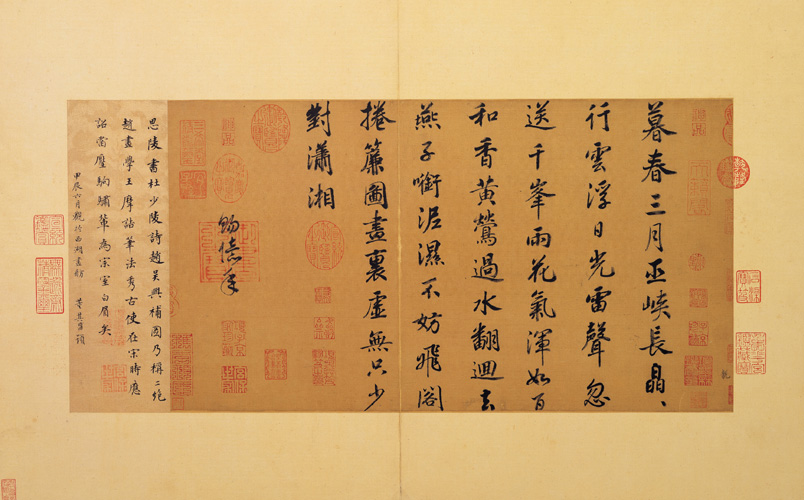 暮春三月巫峽長晶、
行雲浮日光雷聲忽
送千峯雨花氣渾如百
和香黃鶯過水翻迴去
燕子銜泥濕不妨飛閣
捲簾圖畫裏虛無只少
對瀟湘
賜億年
思陵書杜少陵詩趙吳興補圖乃稱二絕
趙畫學王摩詰筆法考古使在宋時應
詔當壓駒驌輩為宗室白眉矣
甲辰六月觀於西湖畫舫 董其昌題